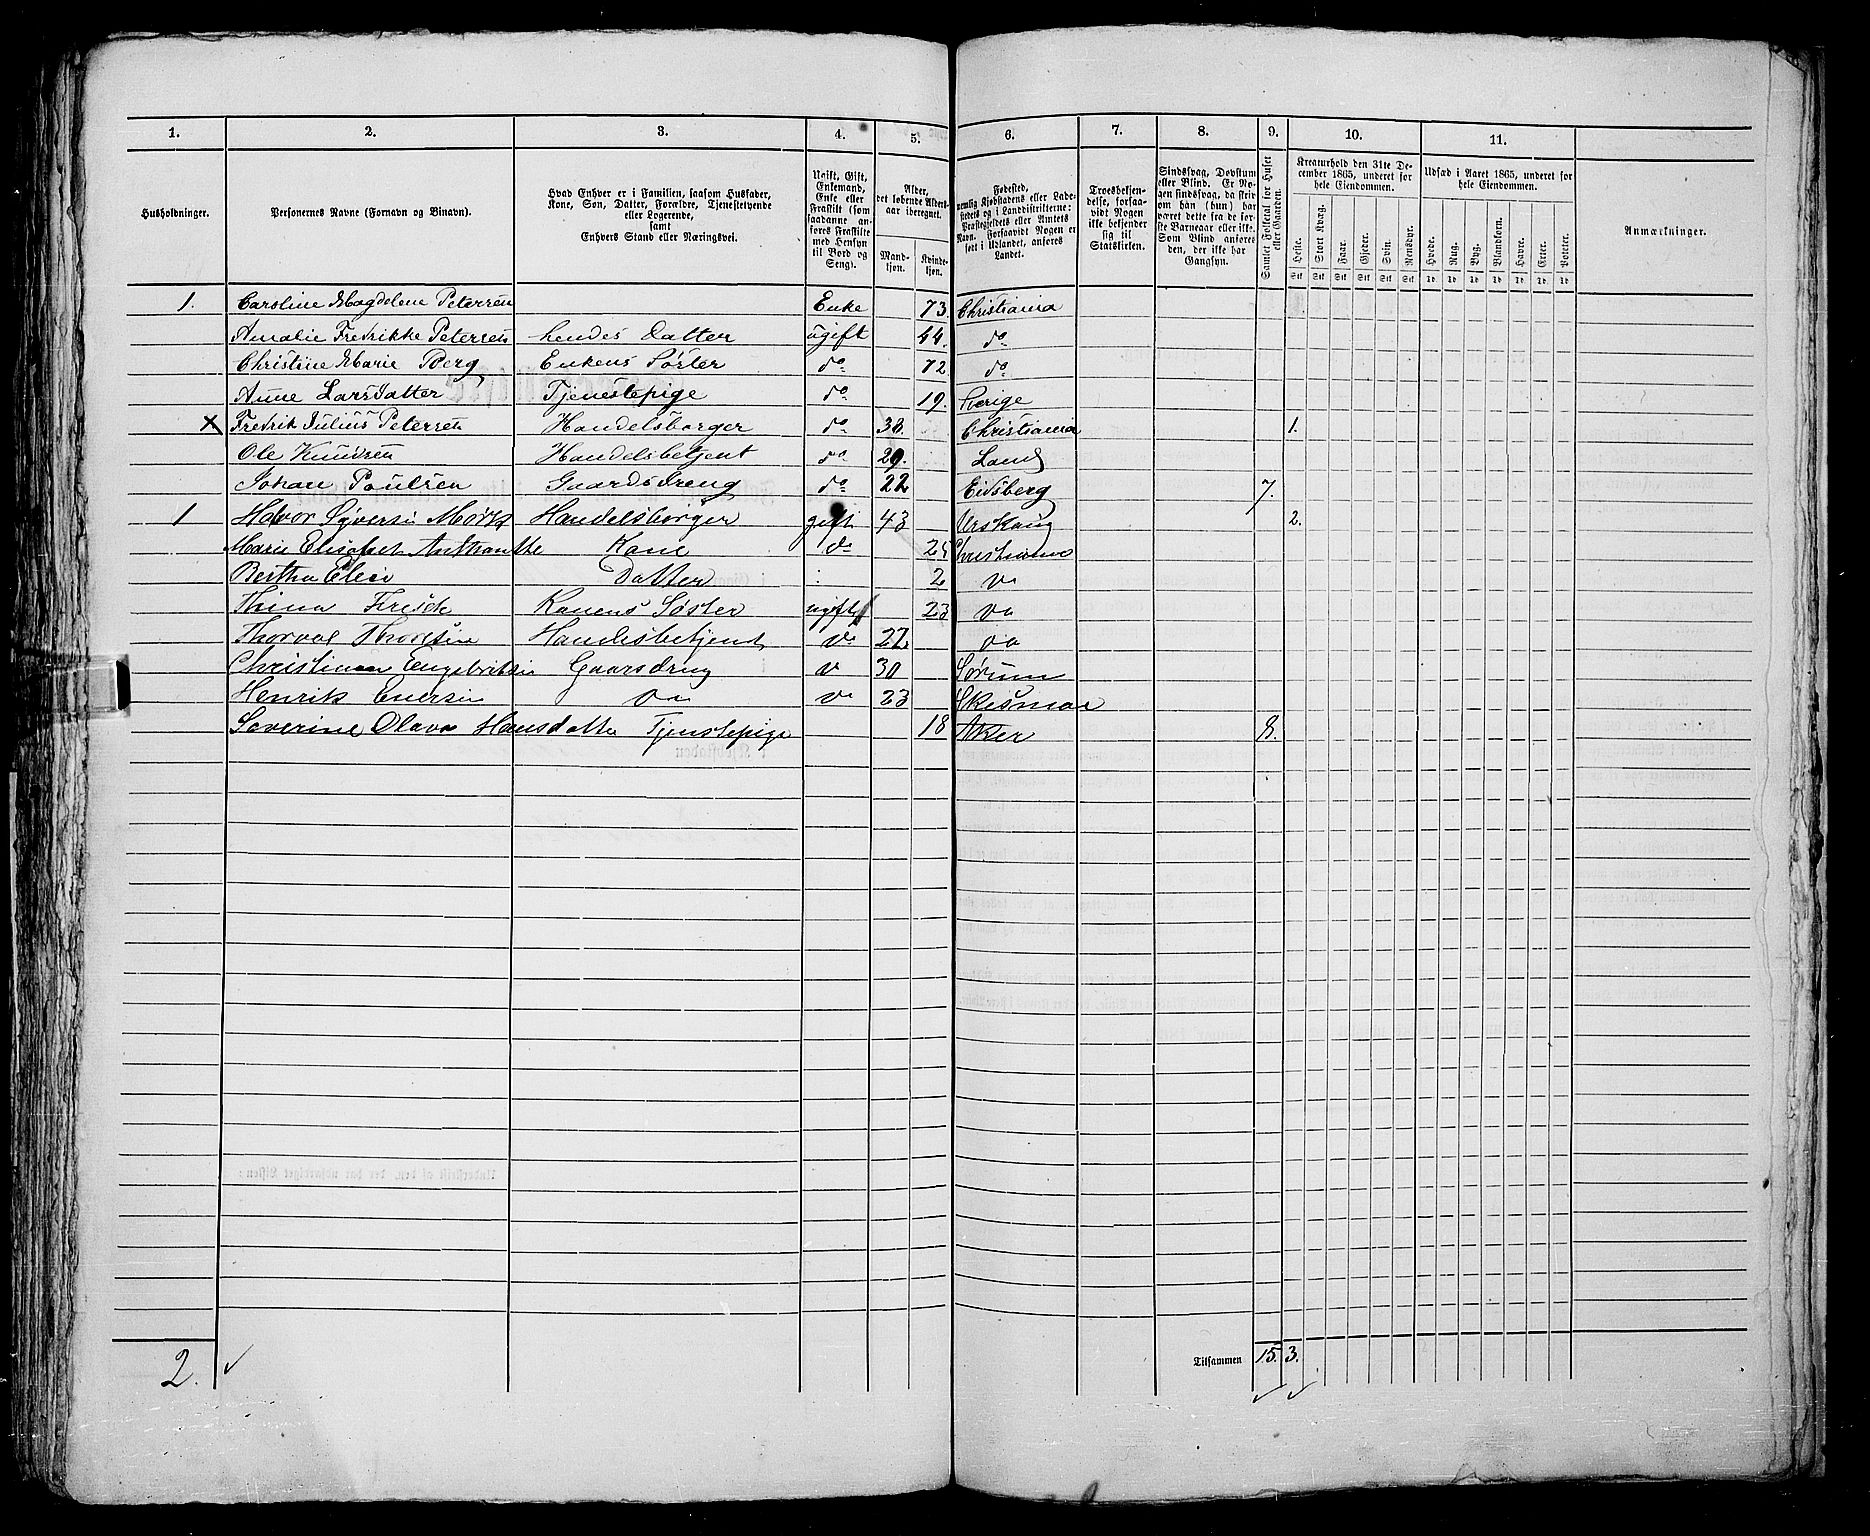 1. 2. 3. 4. 5. 6. 7. 8. 9. 10. 11.
Husholdninger. Personernes Navne (Fornavn og Binavn). Hvad Enhver er i Familien, saasom Husfader, Kone, Søn, Datter, Forældre, Tjenestetyende eller Logerende, samt Enhvers Stand eller Næringsvei. Ugift, Gift, Enkemand, Enke eller Fraskilt (som saadanne anføres Fraskilte med Hensyn til Bord og Seng). Alder, det løbende Aldersaar iberegnet. Mandkjøn. Kvindekjøn. Fødested, nemlig Kjøbstadens eller Ladestedets og i Landdistrikterne: Præstegjeldets eller Amtets Navn. Forsaavidt Nogen er født i Udlandet, anføres Landet. Troesbekjendelse, forsaavidt Nogen ikke bekjender sig til Statskirken. Sindssvag, Døvstum eller Blind. Er Nogen sindssvag, da skrives om han (hun) har været dette fra de første Barneaar eller ikke. Som Blind anføres den, der ikke har Gangsyn. Samlet Folketal for Huset eller Gaarden. Kreaturhold den 31te December 1865, underet for hele Eiendommen. Heste. Stort Kvæg. Faar. Gjeder. Svin. Rensdyr. Udsæd i Aaret 1865, underet for hele Eiendommen. Hvede. Rug. Byg. Blandkorn. Havre. Erter. Poteter. Anmærkninger.
1. Caroline Magdelene Petersen Enke 73. Christiania
Amalie Fredrikke Petersen hendes Datter ugift 44. do
Christine Marie Berg Enkens Søster do 72. do
Anne Larsdatter Tjenestepige do 19. Sverige
X Fredrik Julius Petersen Handelsborger do 38. Christiania 1.
Ole Knudsen Handelsbetjent do 29. Land
Johan Poulsen Gaardsdreng do 22 Eidsberg 7.
1 Halvor Syversen Mørk Handelsborger gift 43 Urskoug 2.
Marie Elisabet Kone do 25 Christiania
Bertha Elise Datter 2 do
Thina Frisch Konens Søster ugift 23 do
Thorval Thoresen Handelsbetjent do 27. do
Christian Engebretsen Gaarsdreng do 30 Sørum
Henrik Evensen do do 23 Skesmoe
Severine Olava Hansdatte Tjenstepige 18 Aker 8.
2. Tilsammen 15. 3.